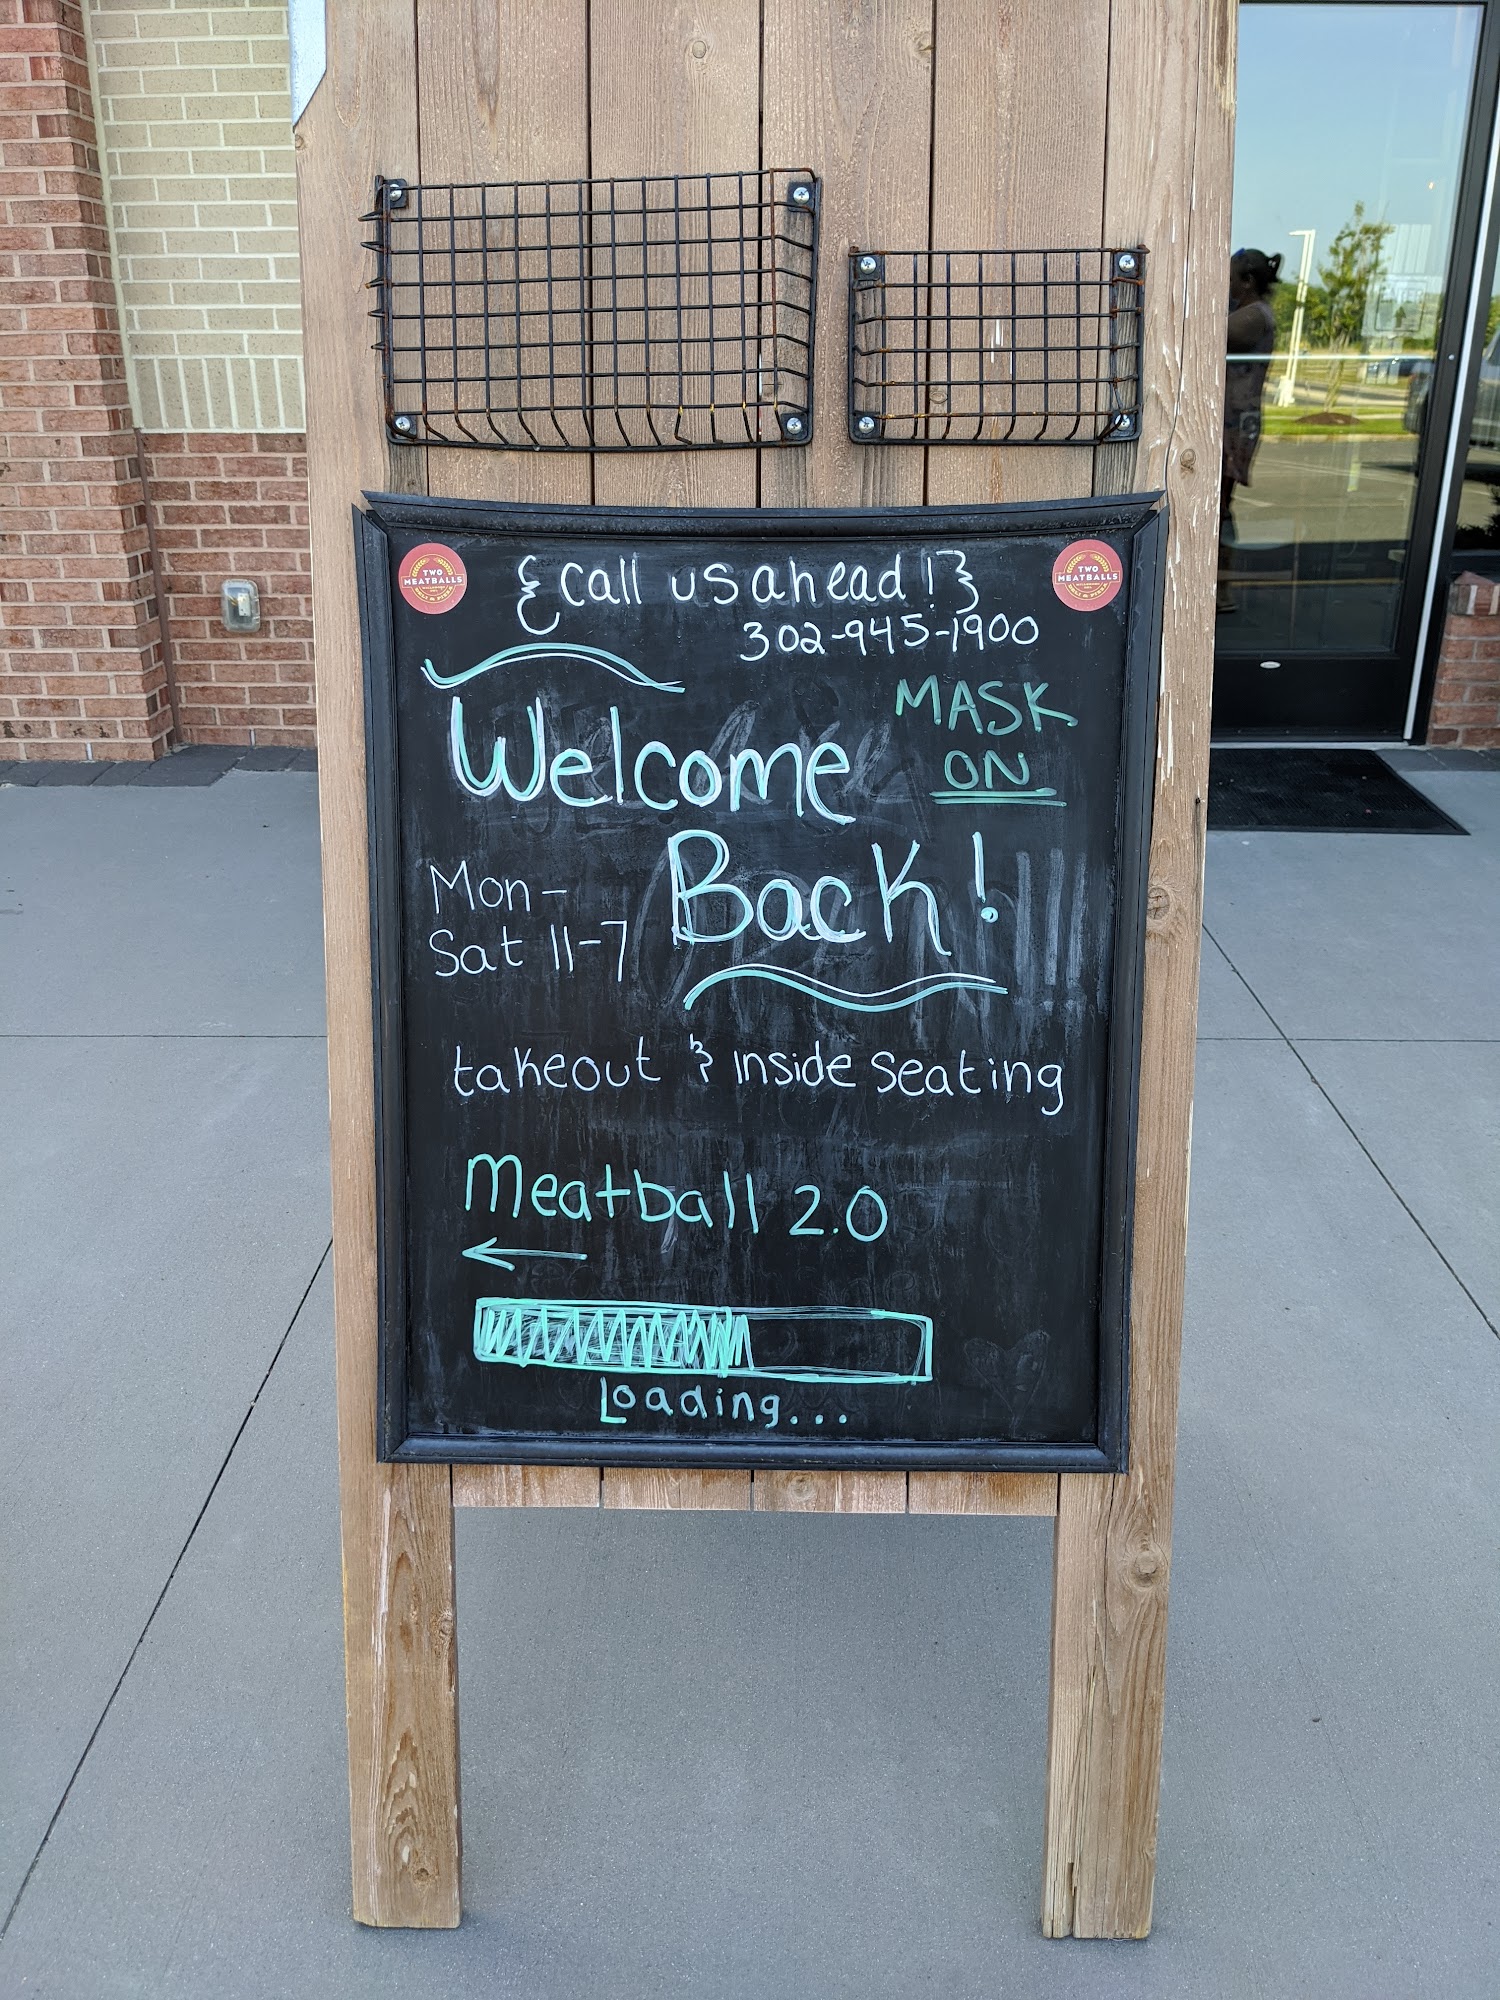 TWO
MEATBALLS
DELI & PIZZA
{ Call us ahead! }
302-945-1900
TWO
MEATBALLS
DELI & PIZZA
MASK
ON
Welcome
Back!
Mon-
Sat 11-7
takeout & Inside Seating
Meatball 2.0
←
Loading...